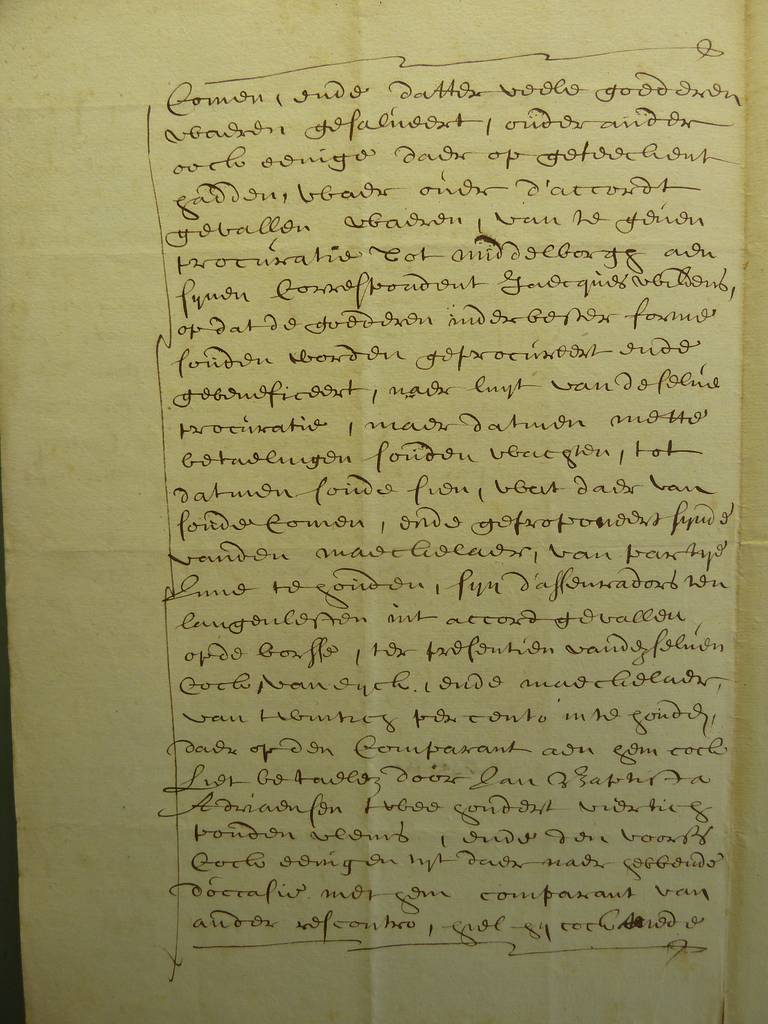 Comen, ende datter veele goederen
waeren gesalueert, onder ander
oock eenige daer op geteeckent
hadden, waer over d'accordt
gevallen waeren, van te geven
procuratie tot middelborgh aen
synen Correspondent Jaecques Wildens,
op dat de goederen inder bester forme
souden worden geprocureert ende
gebeneficeert, naer luyt van deselve
procuratie, maer datmen mette
betaelingen souden wachten, tot
datmen soude sien, wat daer van
soude Comen, ende geproponeert synde
vanden maeckelaer, van partye
te houden, syn d'assenradors ten
langenlesten int accord gevallen
opde borsse, ter presentien vande selven
Cock, van eyck, ende maeckelaer,
van twintich per cento in te houden,
daer op den Comparant aen hem cock
Liet betaelen door Jan Baptista
Adriaensen twee hondert viertich
ponden vlems, ende den voors
Cock eenigen tyt daer naer hebbende
d'occasie met hem comparant van
ander rescontro, hiel hy cock mede